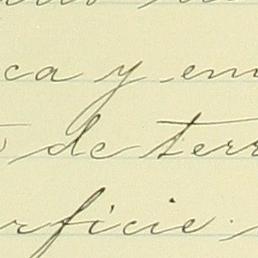 ca y em
de terr
rficie.